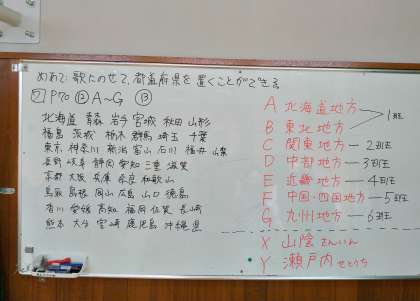 めあて:歌にのせて、都道府県を置くことができる
② P70 ⑫ A〜G ⑬
北海道 青森 岩手 宮城 秋田 山形
福島 茨城 栃木 群馬 埼玉 千葉
東京 神奈川 新潟 富山 石川 福井 山梨
長野 岐阜 静岡 愛知 三重 滋賀
京都 大阪 兵庫 奈良 和歌山
鳥取 島根 岡山 広島 山口 徳島
香川 愛媛 高知 福岡 佐賀 長崎
熊本 大分 宮崎 鹿児島 沖縄県
A 北海道地方
B 東北地方
1班
C 関東地方 - 2班
D 中部地方 - 3班
E 近畿地方 - 4班
F 中国・四国地方 - 5班
G 九州地方 - 6班
X 山陰 さんいん
Y 瀬戸内 せとうち